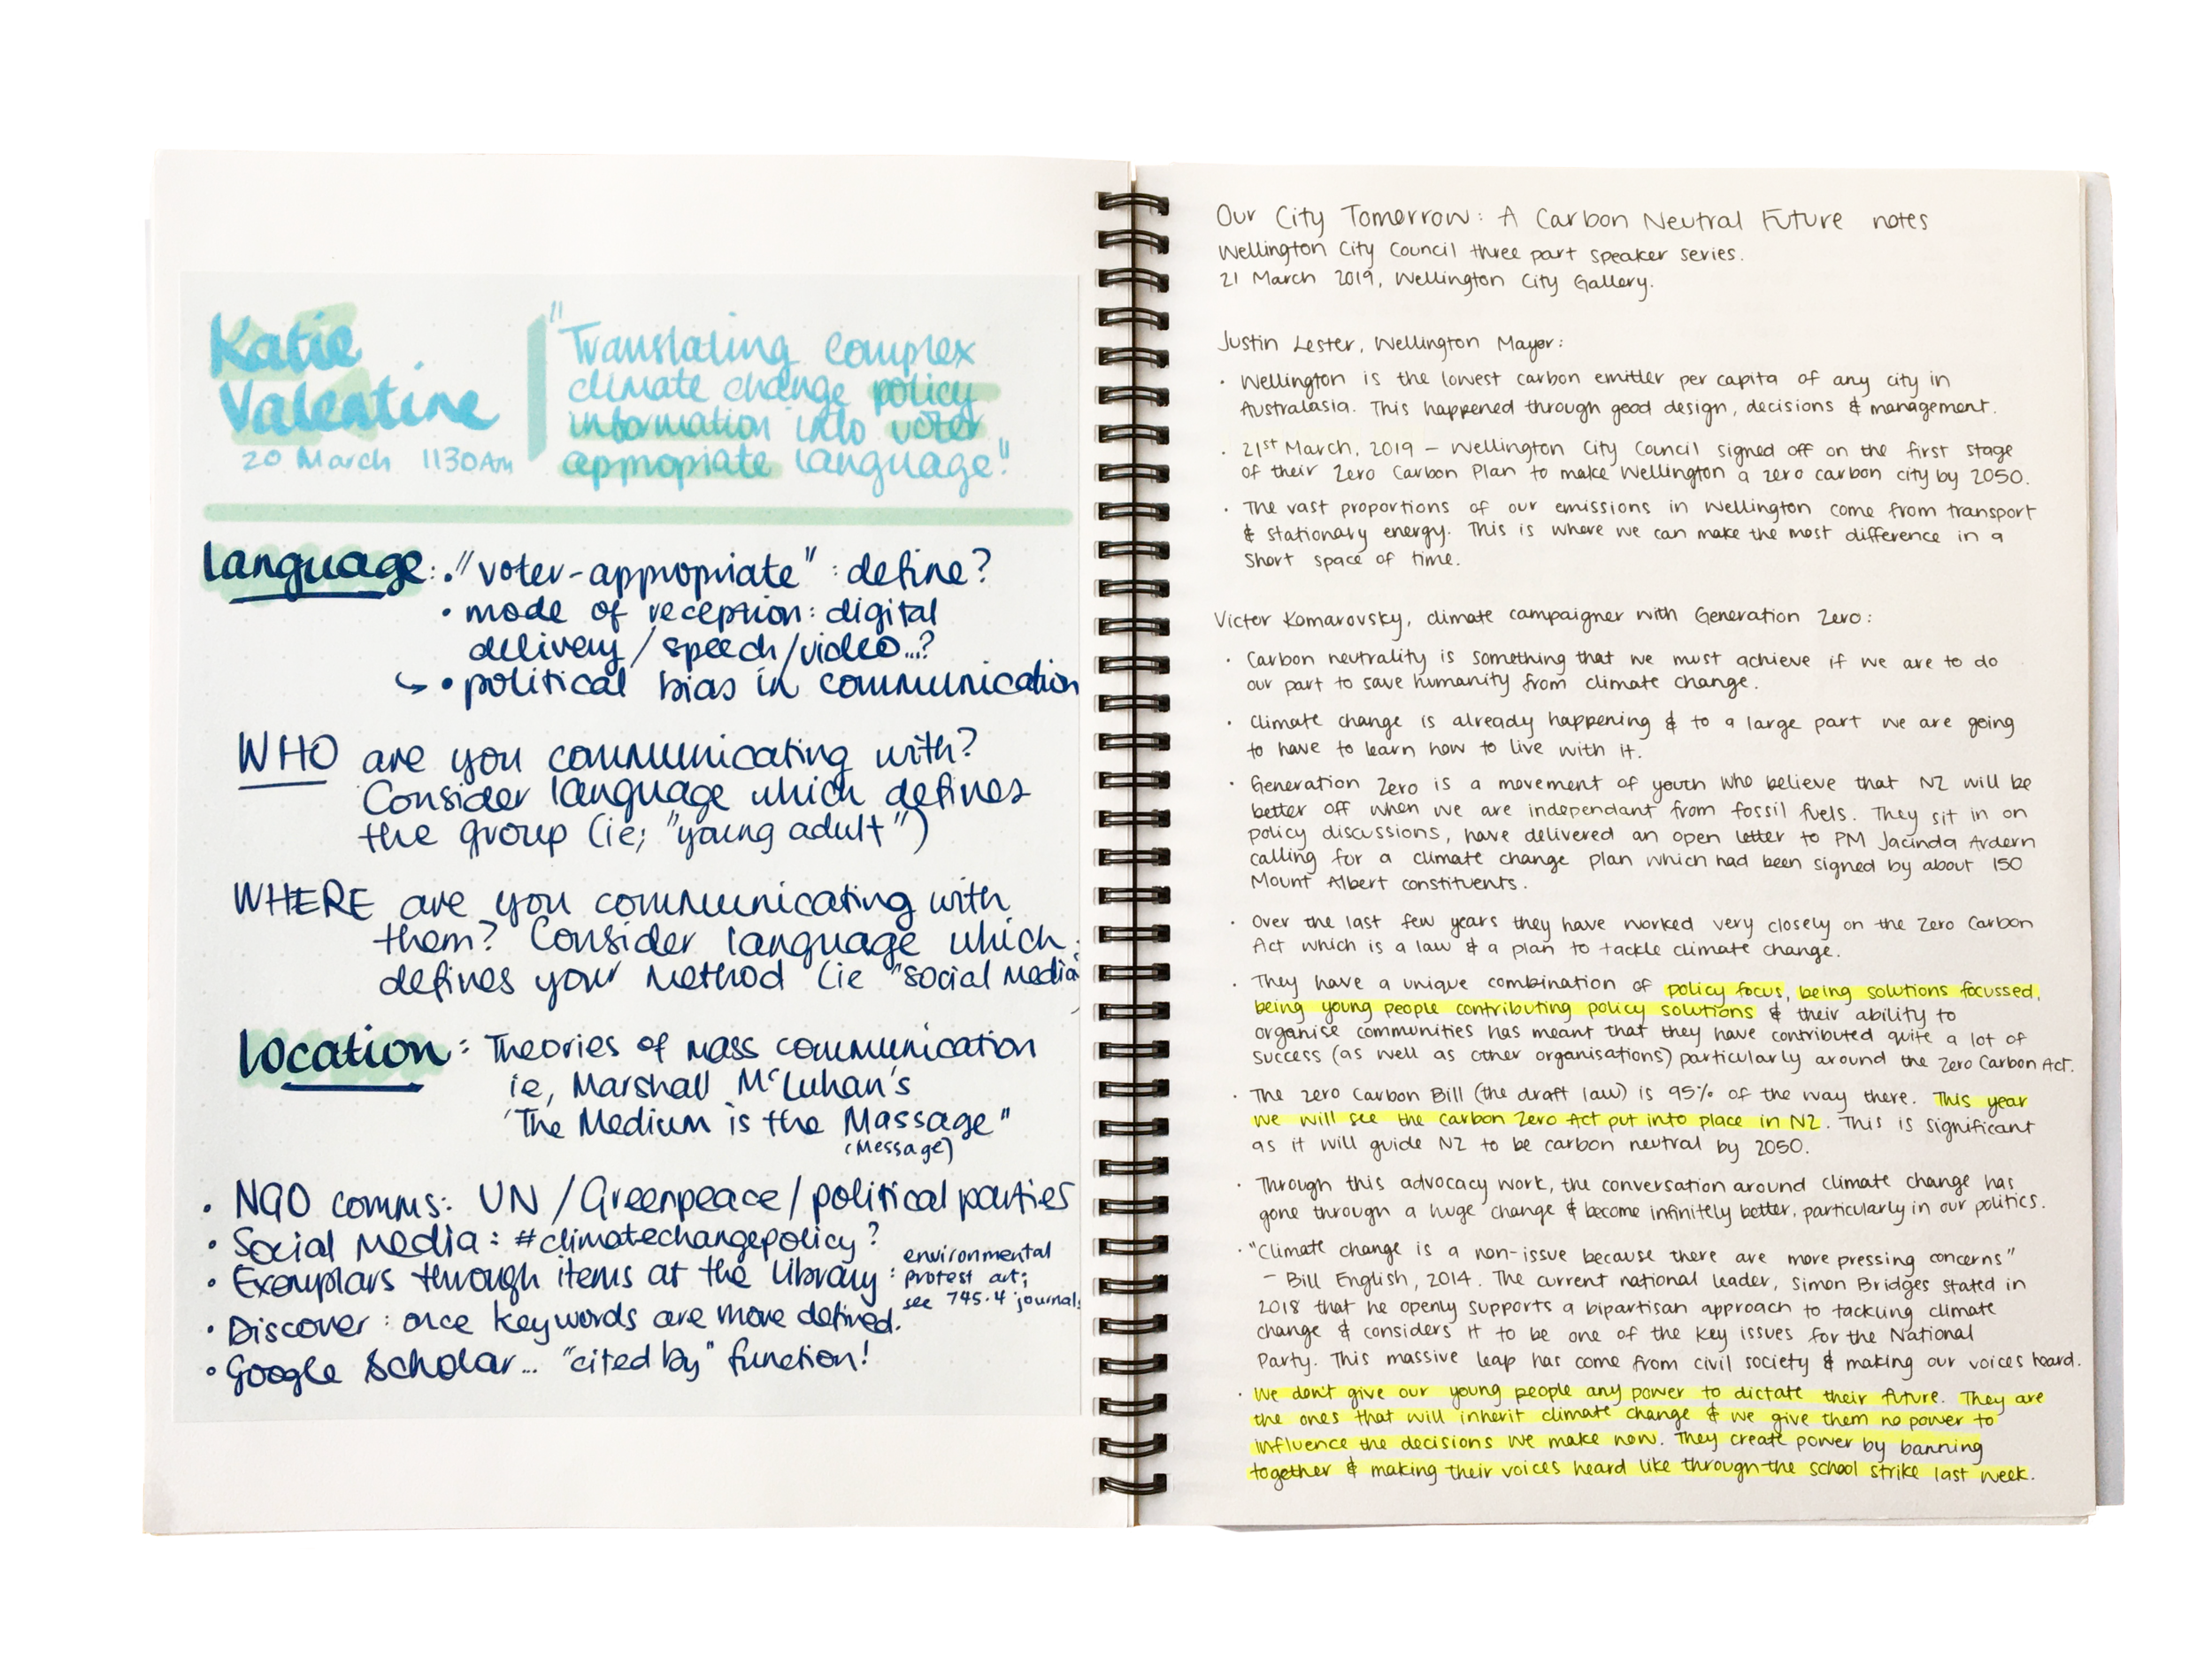 Katie
Valentine
20 March 1130AM
"Translating complex
climate change policy
information into voter
appropriate language."
language: • "voter-appropriate" : define?
• mode of reception: digital
delivery / speech / video...?
↳ • political bias in communication
WHO are you communicating with?
Consider language which defines
the group (ie; "young adult")
WHERE are you communicating with
them? Consider language which
defines your method (ie "social media
location: Theories of mass communication
ie, Marshall McLuhan's
'The Medium is the Massage"
(Message)
• NGO comms: UN / Greenpeace / political parties
• Social Media: #climatechangepolicy?
• Exemplars through items at the library: environmental
protest art;
see 745.4 journals
• Discover: once keywords are more defined.
• Google Scholar... "cited by" function!
Our City Tomorrow: A Carbon Neutral Future notes
Wellington City Council three part speaker series.
21 March 2019, Wellington City Gallery.
Justin Lester, Wellington Mayor:
• Wellington is the lowest carbon emitter per capita of any city in
Australasia. This happened through good design, decisions & management.
• 21st March, 2019 – Wellington City Council signed off on the first stage
of their Zero Carbon Plan to make Wellington a zero carbon city by 2050.
• The vast proportions of our emissions in Wellington come from transport
& stationary energy. This is where we can make the most difference in a
short space of time.
Victor Komarovsky, climate campaigner with Generation Zero:
• Carbon neutrality is something that we must achieve if we are to do
our part to save humanity from climate change.
• Climate change is already happening & to a large part we are going
to have to learn how to live with it.
• Generation Zero is a movement of youth who believe that NZ will be
better off when we are independant from fossil fuels. They sit in on
policy discussions, have delivered an open letter to PM Jacinda Ardern
calling for a climate change plan which had been signed by about 150
Mount Albert constituents.
• Over the last few years they have worked very closely on the Zero Carbon
Act which is a law & a plan to tackle climate change.
• They have a unique combination of policy focus, being solutions focussed,
being young people contributing policy solutions & their ability to
organise communities has meant that they have contributed quite a lot of
success (as well as other organisations) particularly around the Zero Carbon Act.
• The zero Carbon Bill (the draft law) is 95% of the way there. This year
we will see the Carbon Zero Act put into place in NZ. This is significant
as it will guide NZ to be carbon neutral by 2050.
• Through this advocacy work, the conversation around climate change has
gone through a huge change & become infinitely better, particularly in our politics.
• "Climate change is a non-issue because there are more pressing concerns"
– Bill English, 2014. The current national leader, Simon Bridges stated in
2018 that he openly supports a bipartisan approach to tackling climate
change & considers it to be one of the key issues for the National
Party. This massive leap has come from civil society & making our voices heard.
• We don't give our young people any power to dictate their future. They are
the ones that will inherit climate change & we give them no power to
influence the decisions we make now. They create power by banning
together & making their voices heard like through the school strike last week.